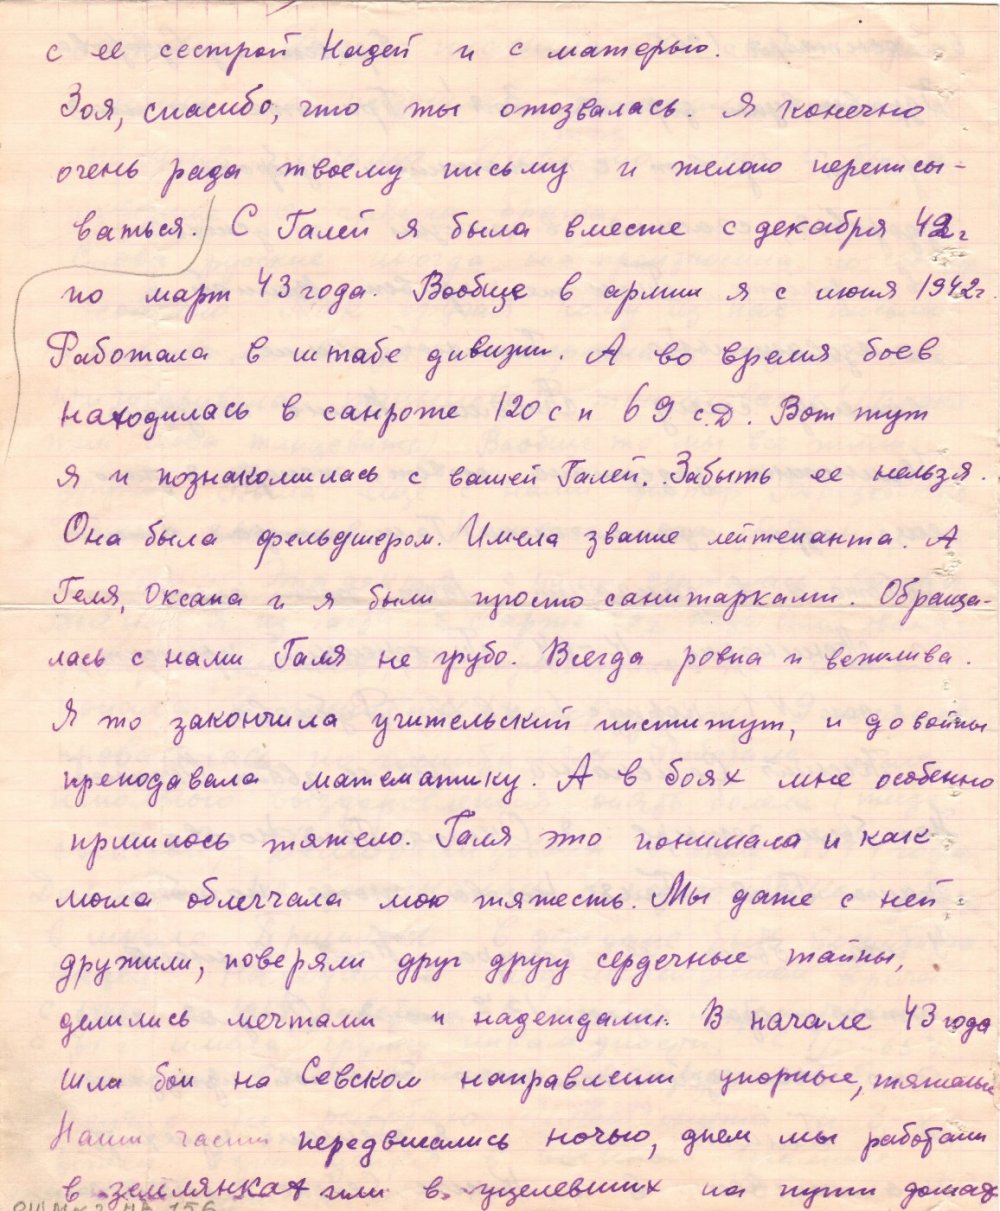 с ее сестрой Надей и с матерью.
Зоя, спасибо, что ты отозвалась. Я конечно
очень рада твоему письму и желаю переписы-
ваться. С Галей я была вместе с декабря 42г
по март 43 года. Вообще в армии я с июня 1942г.
Работала в штабе дивизии. А во время боев
находилась в санроте 120 с п 69 с.Д. Вот тут
я и познакомилась с вашей Галей. Забыть ее нельзя.
Она была фельдшером. Имела звание лейтенанта. А
Геля, Оксана и я были просто санитарками. Обраща-
лась с нами Галя не грубо. Всегда ровна и вежлива.
Я то закончила учительский институт, и до войны
преподавала математику. А в боях мне особенно
пришлось тяжело. Галя это понимала и как
могла облегчала мою тяжесть. Мы даже с ней
дружили, поверяли друг другу сердечные тайны,
делились мечтами и надеждами. В начале 43 года
шли бои на Севском направлении упорные, тяжелые
Наши части передвигались ночью, днем мы работали
в землянках или в уцелевших на пути домах
156